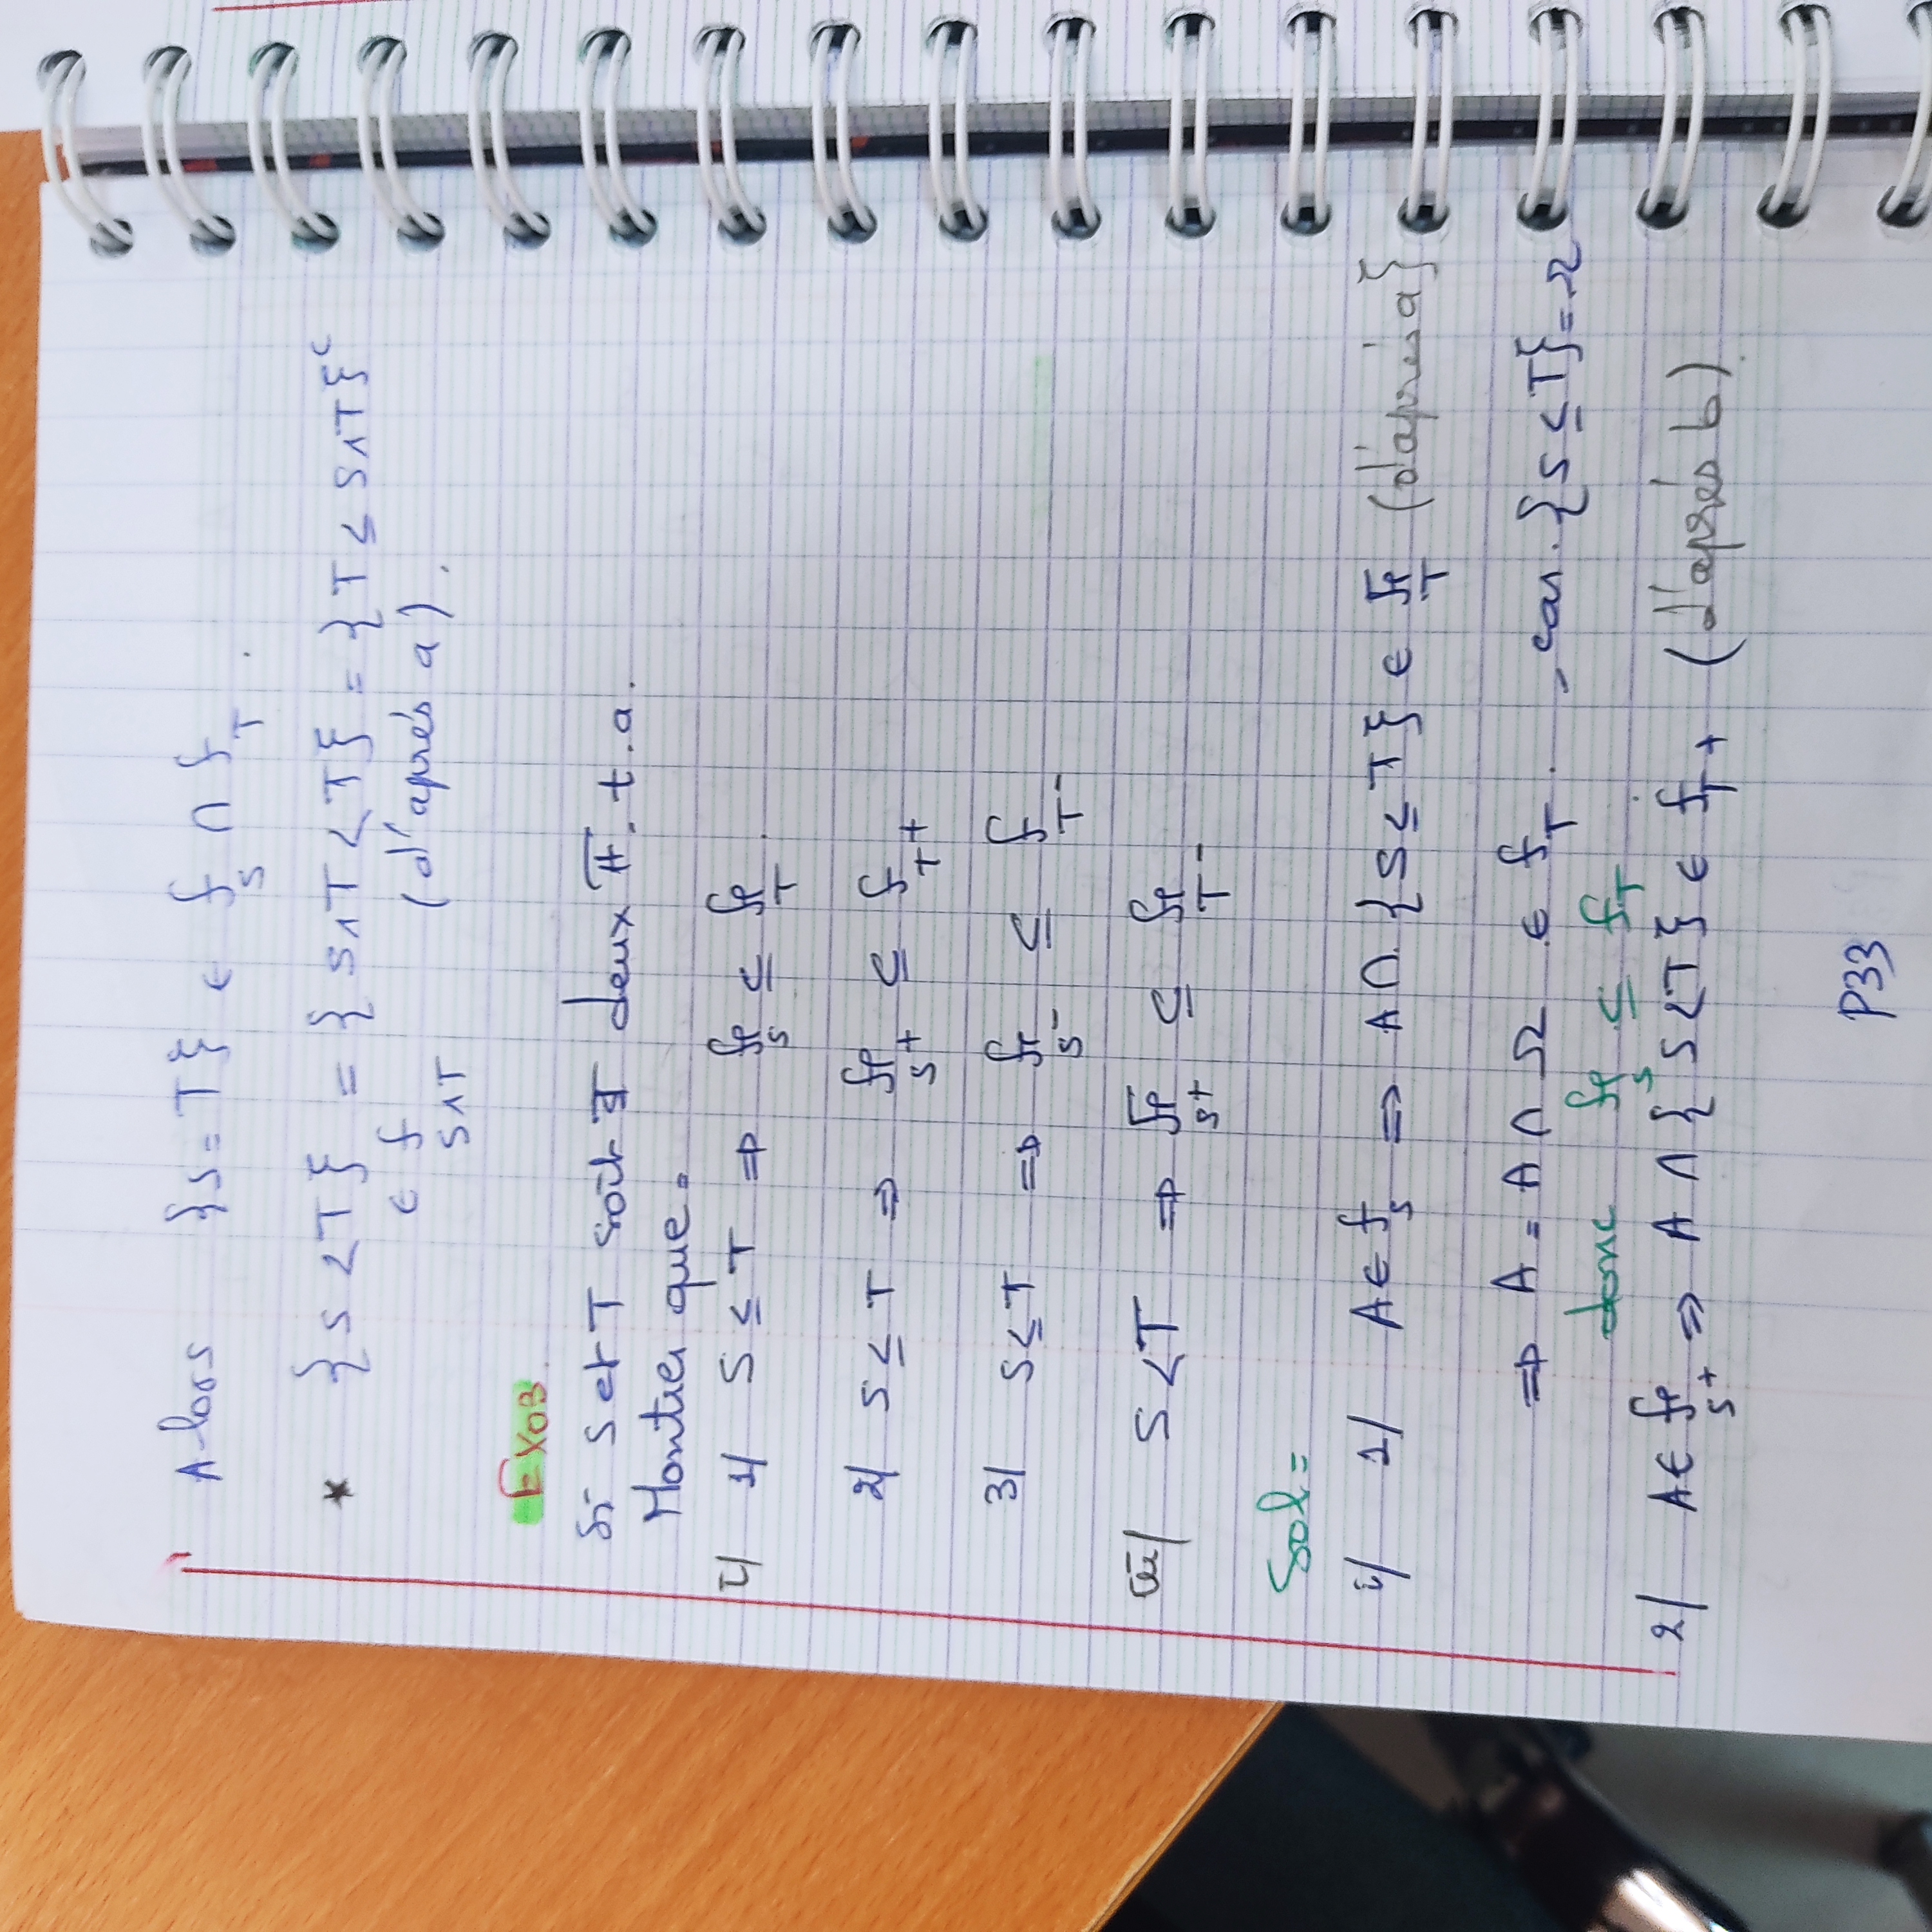 Alors {S = T} ∈ f_S ∩ f_T .
* {S < T} = {S∧T < T} = {T ≤ S∧T}^c
∈ f_{S∧T} (d'après a).
Exo3.
Si S et T soit deux F. t.a.
Montrer que.
i/ 1/ S ≤ T ⇒ f_S ⊆ f_T .
2/ S ≤ T ⇒ f_{S^+} ⊆ f_{T^+}
3/ S ≤ T ⇒ f_{S^-} ⊆ f_{T^-}
iii/ S < T ⇒ f_{S^+} ⊆ f_{T^-}
Sol =
i/ 1/ A ∈ f_S ⇒ A ∩ {S ≤ T} ∈ f_T (d'après a}
⇒ A = A ∩ Ω ∈ f_T . , car. {S ≤ T} = Ω
donc f_S ⊆ f_T .
2/ A ∈ f_{S^+} ⇒ A ∩ { S < T} ∈ f_{T+} (d'après b).
P33